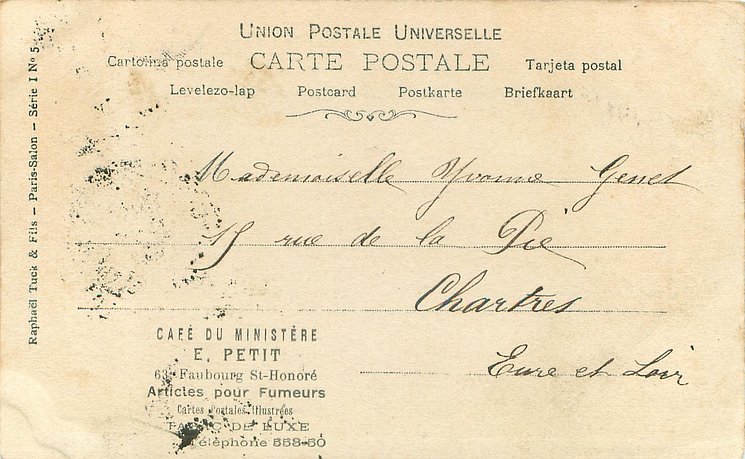 UNION POSTALE UNIVERSELLE
Cartolina postale CARTE POSTALE Tarjeta postal
Levelezo-lap Postcard Postkarte Briefkaart
Raphaël Tuck & Fils – Paris-Salon – Série I Nº 5
Mademoiselle Yvonne Genet
15 rue de la Pie
Chartres
Eure et Loir
CAFÉ DU MINISTÈRE
E. PETIT
63, Faubourg St-Honoré
Articles pour Fumeurs
Cartes Postales Illustrées
TABAC DE LUXE
Téléphone 558-50